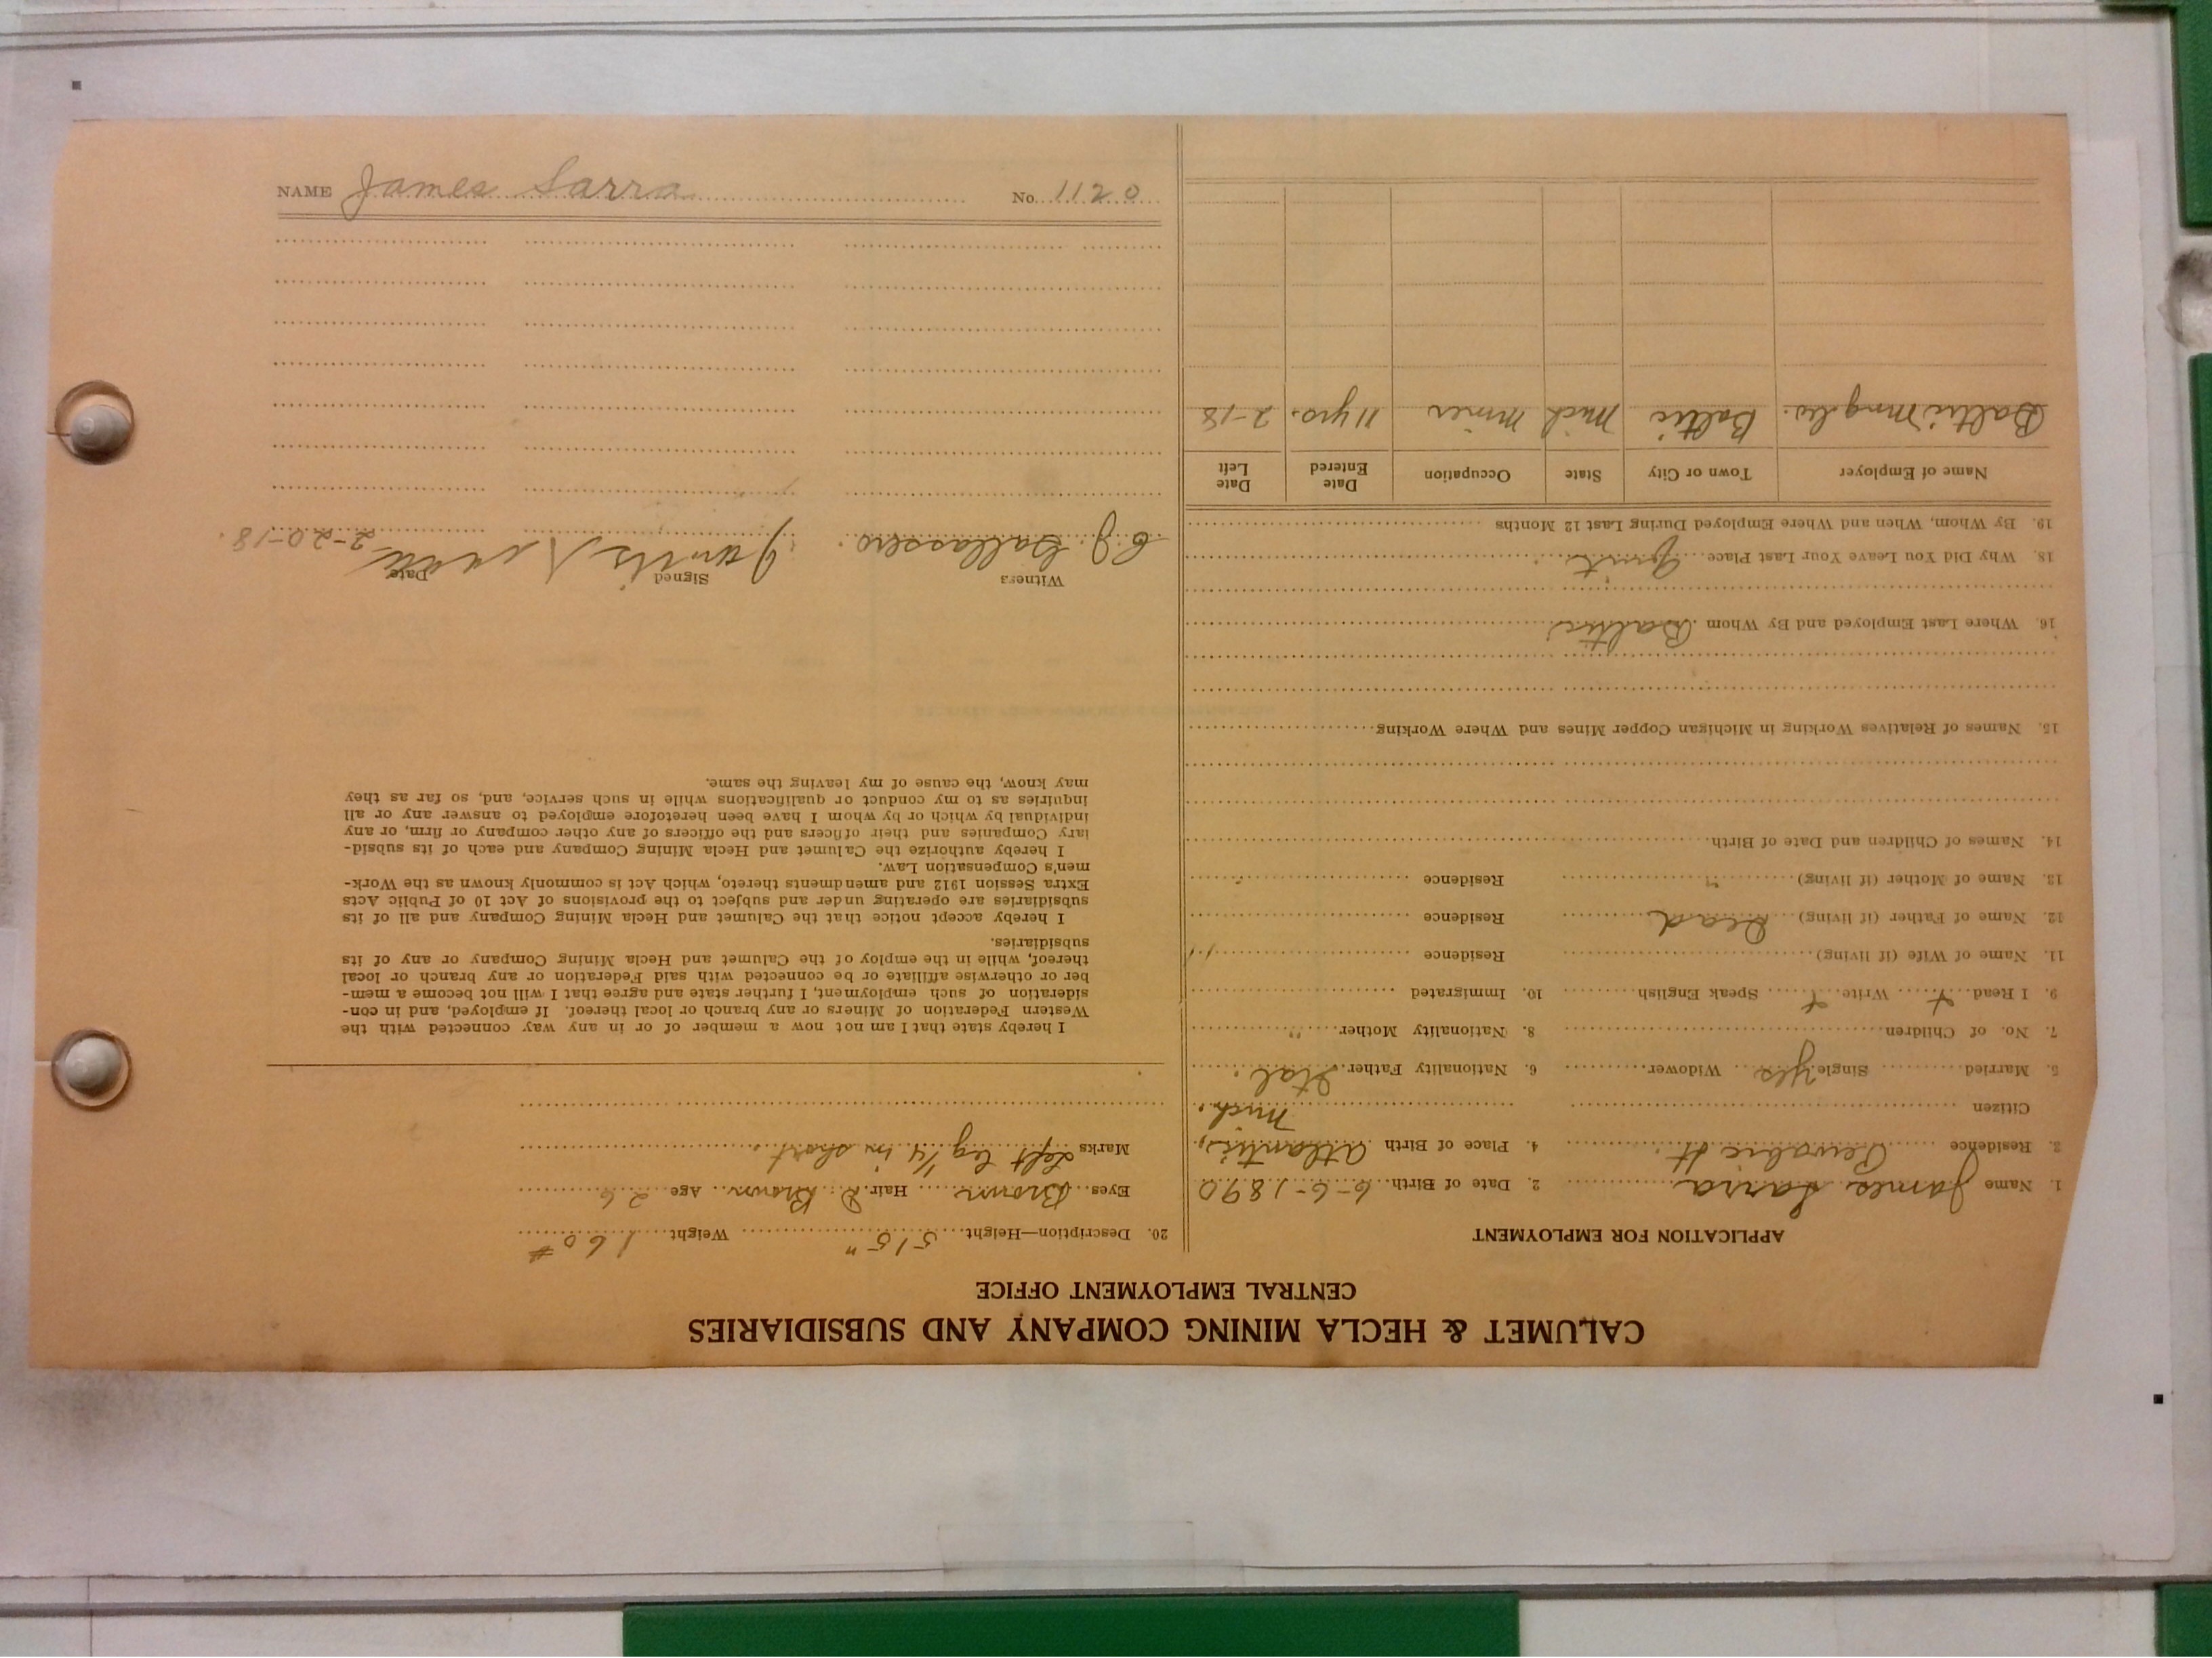 CALUMET & HECLA MINING COMPANY AND SUBSIDIARIES
CENTRAL EMPLOYMENT OFFICE
APPLICATION FOR EMPLOYMENT
1. Name James Sarra 2. Date of Birth 6-6-1890
3. Residence Pewabic St. 4. Place of Birth Atlantic,
Citizen Mich.
5. Married Single yes Widower 6. Nationality Father Ital.
7. No. of Children 8. Nationality Mother "
9. I Read Write Speak English 10. Immigrated
11. Name of Wife (if living) Residence
12. Name of Father (if living) Dead Residence
13. Name of Mother (if living) " Residence
14. Names of Children and Date of Birth
15. Names of Relatives Working in Michigan Copper Mines and Where Working
16. Where Last Employed and By Whom Baltic
18. Why Did You Leave Your Last Place Quit
19. By Whom, When and Where Employed During Last 12 Months
Name of Employer Town or City State Occupation Date Entered Date Left
Baltic Mng. Co. Baltic Mich Miner 11 yrs. 2-18
20. Description—Height 5' 5" Weight 160 #
Eyes Brown Hair D. Brown Age 26
Marks Left leg 1/4 in short.
I hereby state that I am not now a member of or in any way connected with the
Western Federation of Miners or any branch or local thereof. If employed, and in con-
sideration of such employment, I further state and agree that I will not become a mem-
ber or otherwise affiliate or be connected with said Federation or any branch or local
thereof, while in the employ of the Calumet and Hecla Mining Company or any of its
subsidiaries.
I hereby accept notice that the Calumet and Hecla Mining Company and all of its
subsidiaries are operating under and subject to the provisions of Act 10 of Public Acts
Extra Session 1912 and amendments thereto, which Act is commonly known as the Work-
men's Compensation Law.
I hereby authorize the Calumet and Hecla Mining Company and each of its subsid-
iary Companies and their officers and the officers of any other company or firm, or any
individual by which or by whom I have been heretofore employed to answer any or all
inquiries as to my conduct or qualifications while in such service, and, so far as they
may know, the cause of my leaving the same.
Witness Signed Date
2-20-18.
NAME James Sarra No. 1120